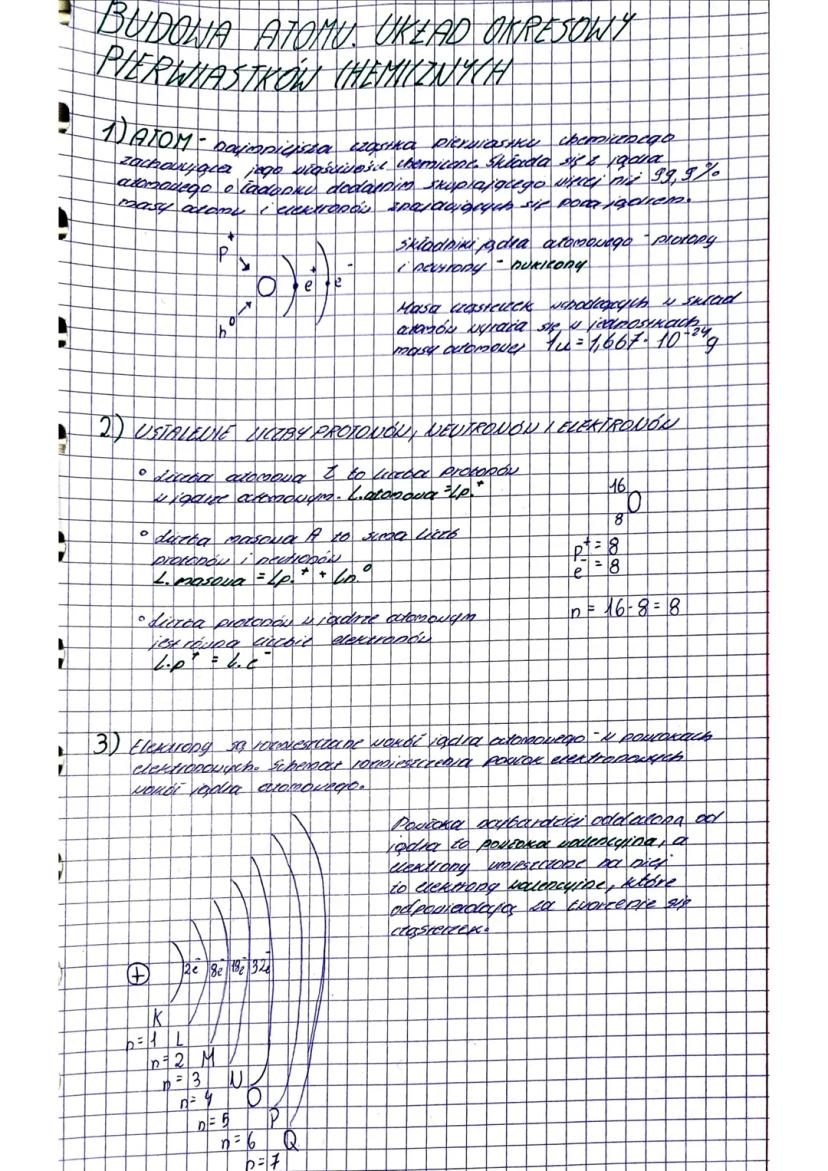 BUDOWA ATOMU. UKŁAD OKRESOWY
PIERWIASTKÓW CHEMICZNYCH
1) ATOM - najmniejsza cząstka pierwiastka chemicznego
zachowująca jego właściwości chemiczne. Składa się z jądra
atomowego o ładunku dodatnim skupiającego więcej niż 99,9%
masy atomu i elektronów znajdujących się poza jądrem.
Składniki jądra atomowego - protony
i neutrony - nukleony
p⁺
e⁺ e⁻
n⁰
Masa cząsteczek wchodzących w skład
atomów wyraża się w jednostkach
masy atomowej 1u = 1,667 · 10⁻²⁴g
2) USTALENIE LICZBY PROTONÓW, NEUTRONÓW I ELEKTRONÓW
° Liczba atomowa Z to liczba protonów
w jądrze atomowym. L.atomowa = Lp.⁺
° Liczba masowa A to suma liczb
protonów i neutronów
L. masowa = Lp.⁺ + Ln.⁰
° Liczba protonów w jądrze atomowym
jest równa liczbie elektronów
L.p⁺ = L.e⁻
16
O
8
p⁺ = 8
e⁻ = 8
n = 16 - 8 = 8
3) Elektrony są rozmieszczane wokół jądra atomowego - w powłokach
elektronowych. Schemat rozmieszczenia powłok elektronowych
wokół jądra atomowego.
Powłoka najbardziej oddalona od
jądra to powłoka walencyjna, a
elektrony umieszczone na niej
to elektrony walencyjne, które
odpowiadają za tworzenie się
cząsteczek.
+ 2e⁻ 8e⁻ 18e⁻ 32e⁻
K
n=1 L
n=2 M
n=3 N
n=4 O
n=5 P
n=6 Q
n=7